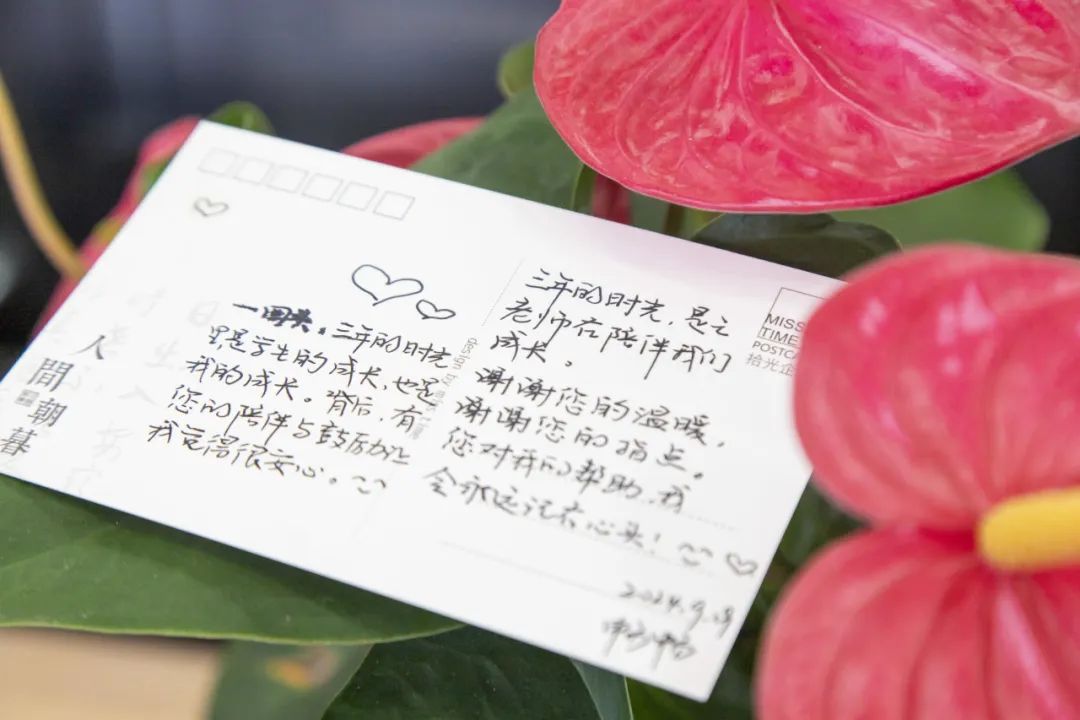 人間朝暮
一回头，三年的时光
只是学生的成长，也是
我的成长。背后，有
您的陪伴与鼓励让
我觉得很安心。
三年的时光，是
老师在陪伴我们
成长。
谢谢您的温暖，
谢谢您的指点。
您对我的帮助，我
会永远记在心头！
2024.9.
MISS
TIME
POSTCA
拾光企
design by